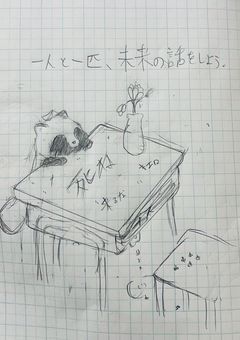 一人と一匹、未来の話をしよう。
死ね
キエロ
来るな